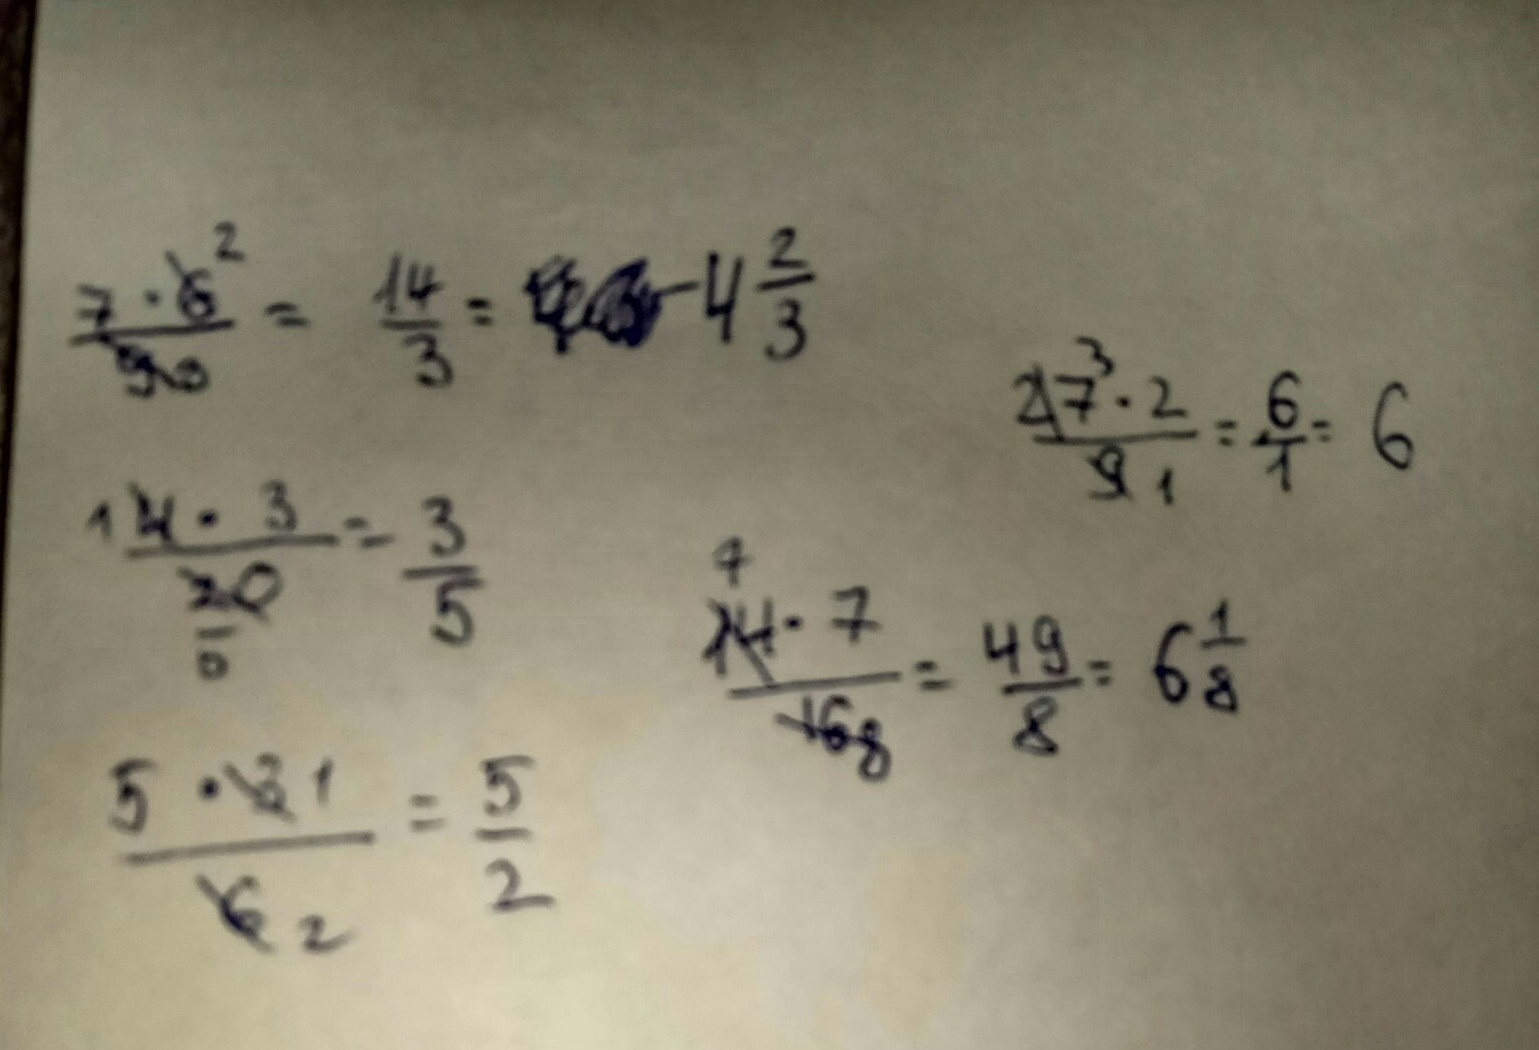 7 · 6 2 / 9 3 = 14/3 = 4 2/3
27 3 · 2 / 9 1 = 6/1 = 6
1 4 · 3 / 20 5 = 3/5
7 14 · 7 / 16 8 = 49/8 = 6 1/8
5 · 3 1 / 6 2 = 5/2